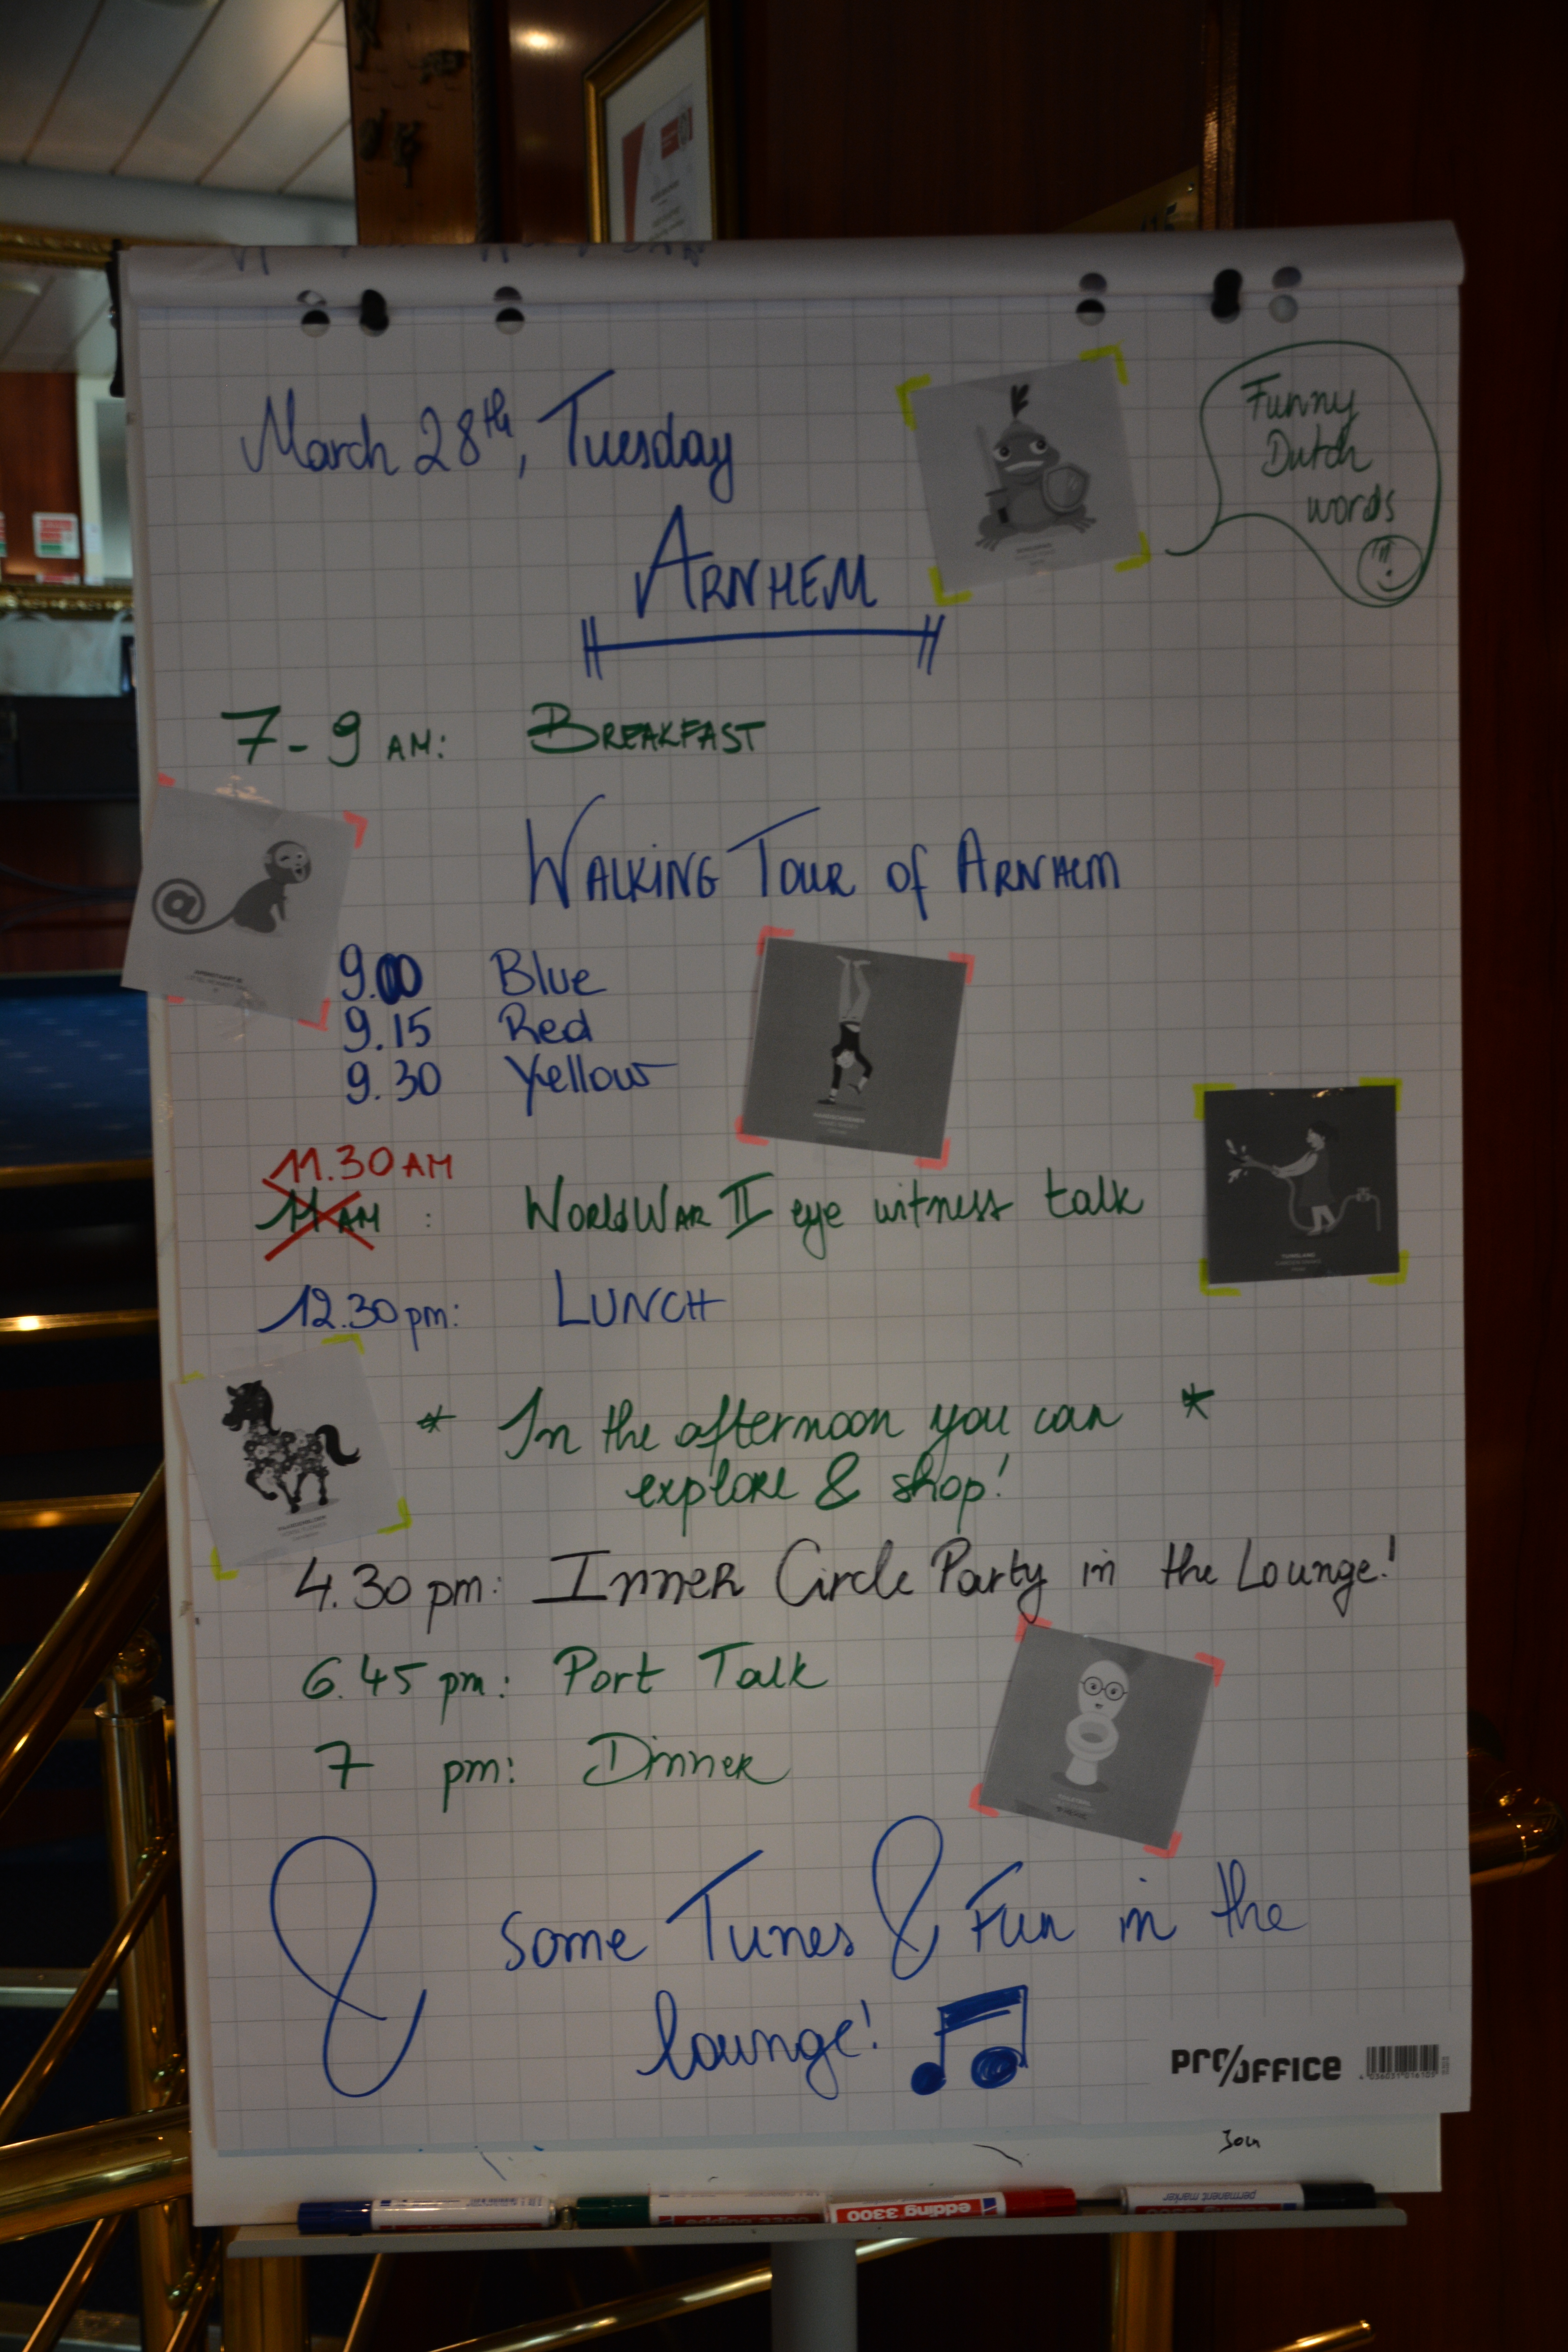 March 28th, Tuesday
Funny
Dutch
words
ARNHEM
7-9 AM: BREAKFAST
WALKING TOUR of ARNHEM
@
9.00 Blue
9.15 Red
9.30 Yellow
11.30 AM
11 AM : WORLD WAR II eye witness talk
12.30 pm: LUNCH
* In the afternoon you can *
explore & shop!
4.30 pm: INNER Circle Party in the Lounge!
6.45 pm: Port Talk
7 pm: Dinner
& some Tunes & Fun in the
lounge!
PRO/OFFICE
edding 3300
permanent marker